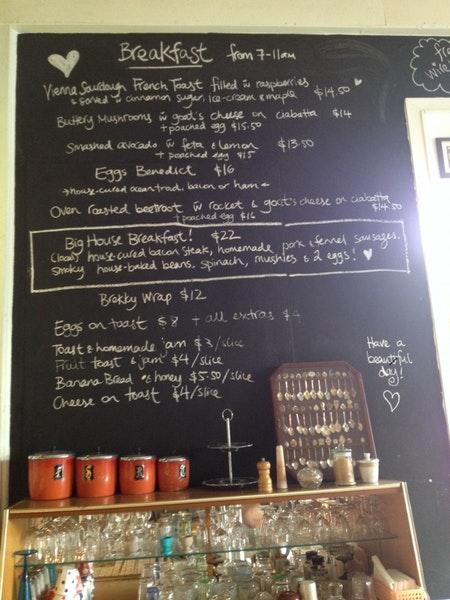 Breakfast from 7-11am
Vienna Sourdough French Toast filled w raspberries
& served w cinnamon sugar, ice-cream & maple $14.50
Buttery Mushrooms w goat's cheese on ciabatta $14
+ poached egg $15.50
Smashed avocado w feta & lemon $13.50
+ poached egg $15
Eggs Benedict $16
house-cured ocean trout, bacon or ham
Oven roasted beetroot w rocket & goat's cheese on ciabatta
+ poached egg $16 $14.50
Big House Breakfast! $22
(local) house-cured bacon steak, homemade pork & fennel sausages.
smoky house-baked beans. spinach, mushies & 2 eggs!
Brekky Wrap $12
Eggs on toast $8 + all extras $4
Toast & homemade jam $3/slice
Fruit toast & jam $4/slice
Banana Bread honey $5.50/slice
Cheese on toast $4/slice
Have a
beautiful
day!